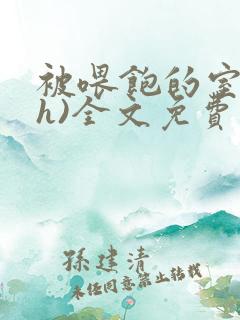 被喂饱的室
h)全文免费
孫建清
未经同意禁止转载